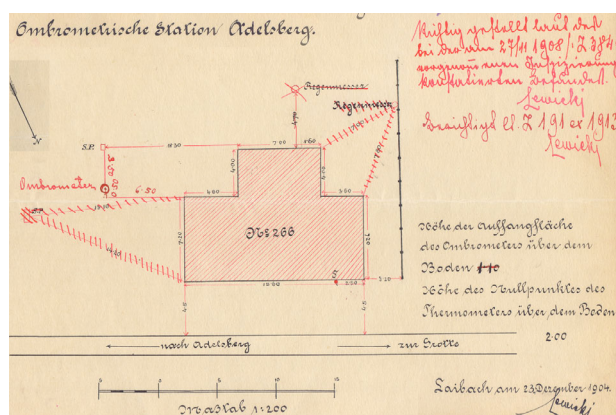 Ombrometrische Station Adelsberg.
Richtig gestellt laut des
bei der am 27/11 1908/: Z 384
vorgenommenen Inspizierung
konstatierten Befundes.
Lewicki
Z 191 ex 1913
Lewicki
Regenmesser
Regenmesser
N
S.P.
10.50
7.00
3.60
4.00
4.00
3.50
0.50
Ombrometer
6.50
4.60
3.60
No 266
7.20
7.20
S
3.10
2.50
Höhe der Auffangfläche
des Ombrometers über dem
Boden 1·10
Höhe des Nullpunktes des
Thermometers über dem Boden
2·00
nach Adelsberg
zur Grotte
5
10
15
Maßstab 1:200
Laibach am 23 Dezember 1904.
Lewicki